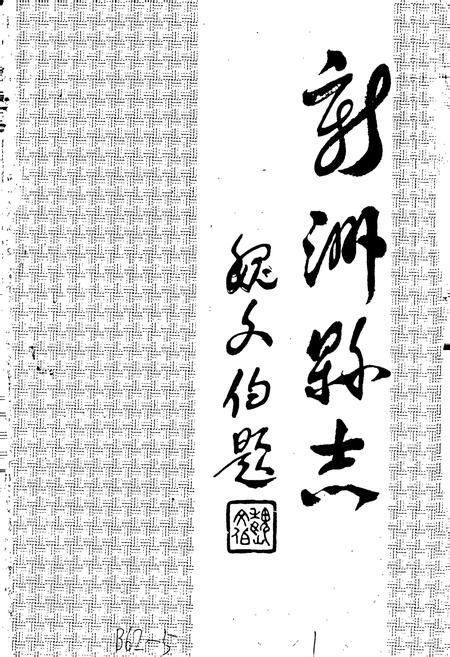 新洲縣志
魏文伯題
魏文伯
B62-5
1